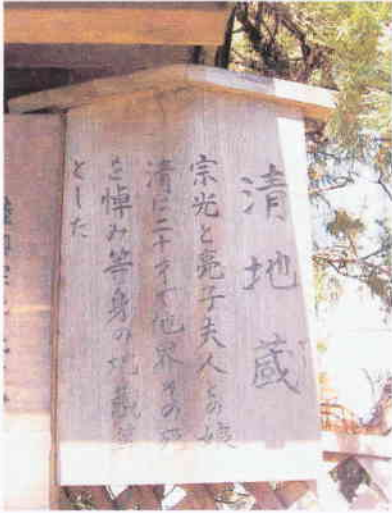 清地蔵
宗光と亮子夫人の娘
清は二十才で他界その死
を悼み等身の地蔵尊
とした